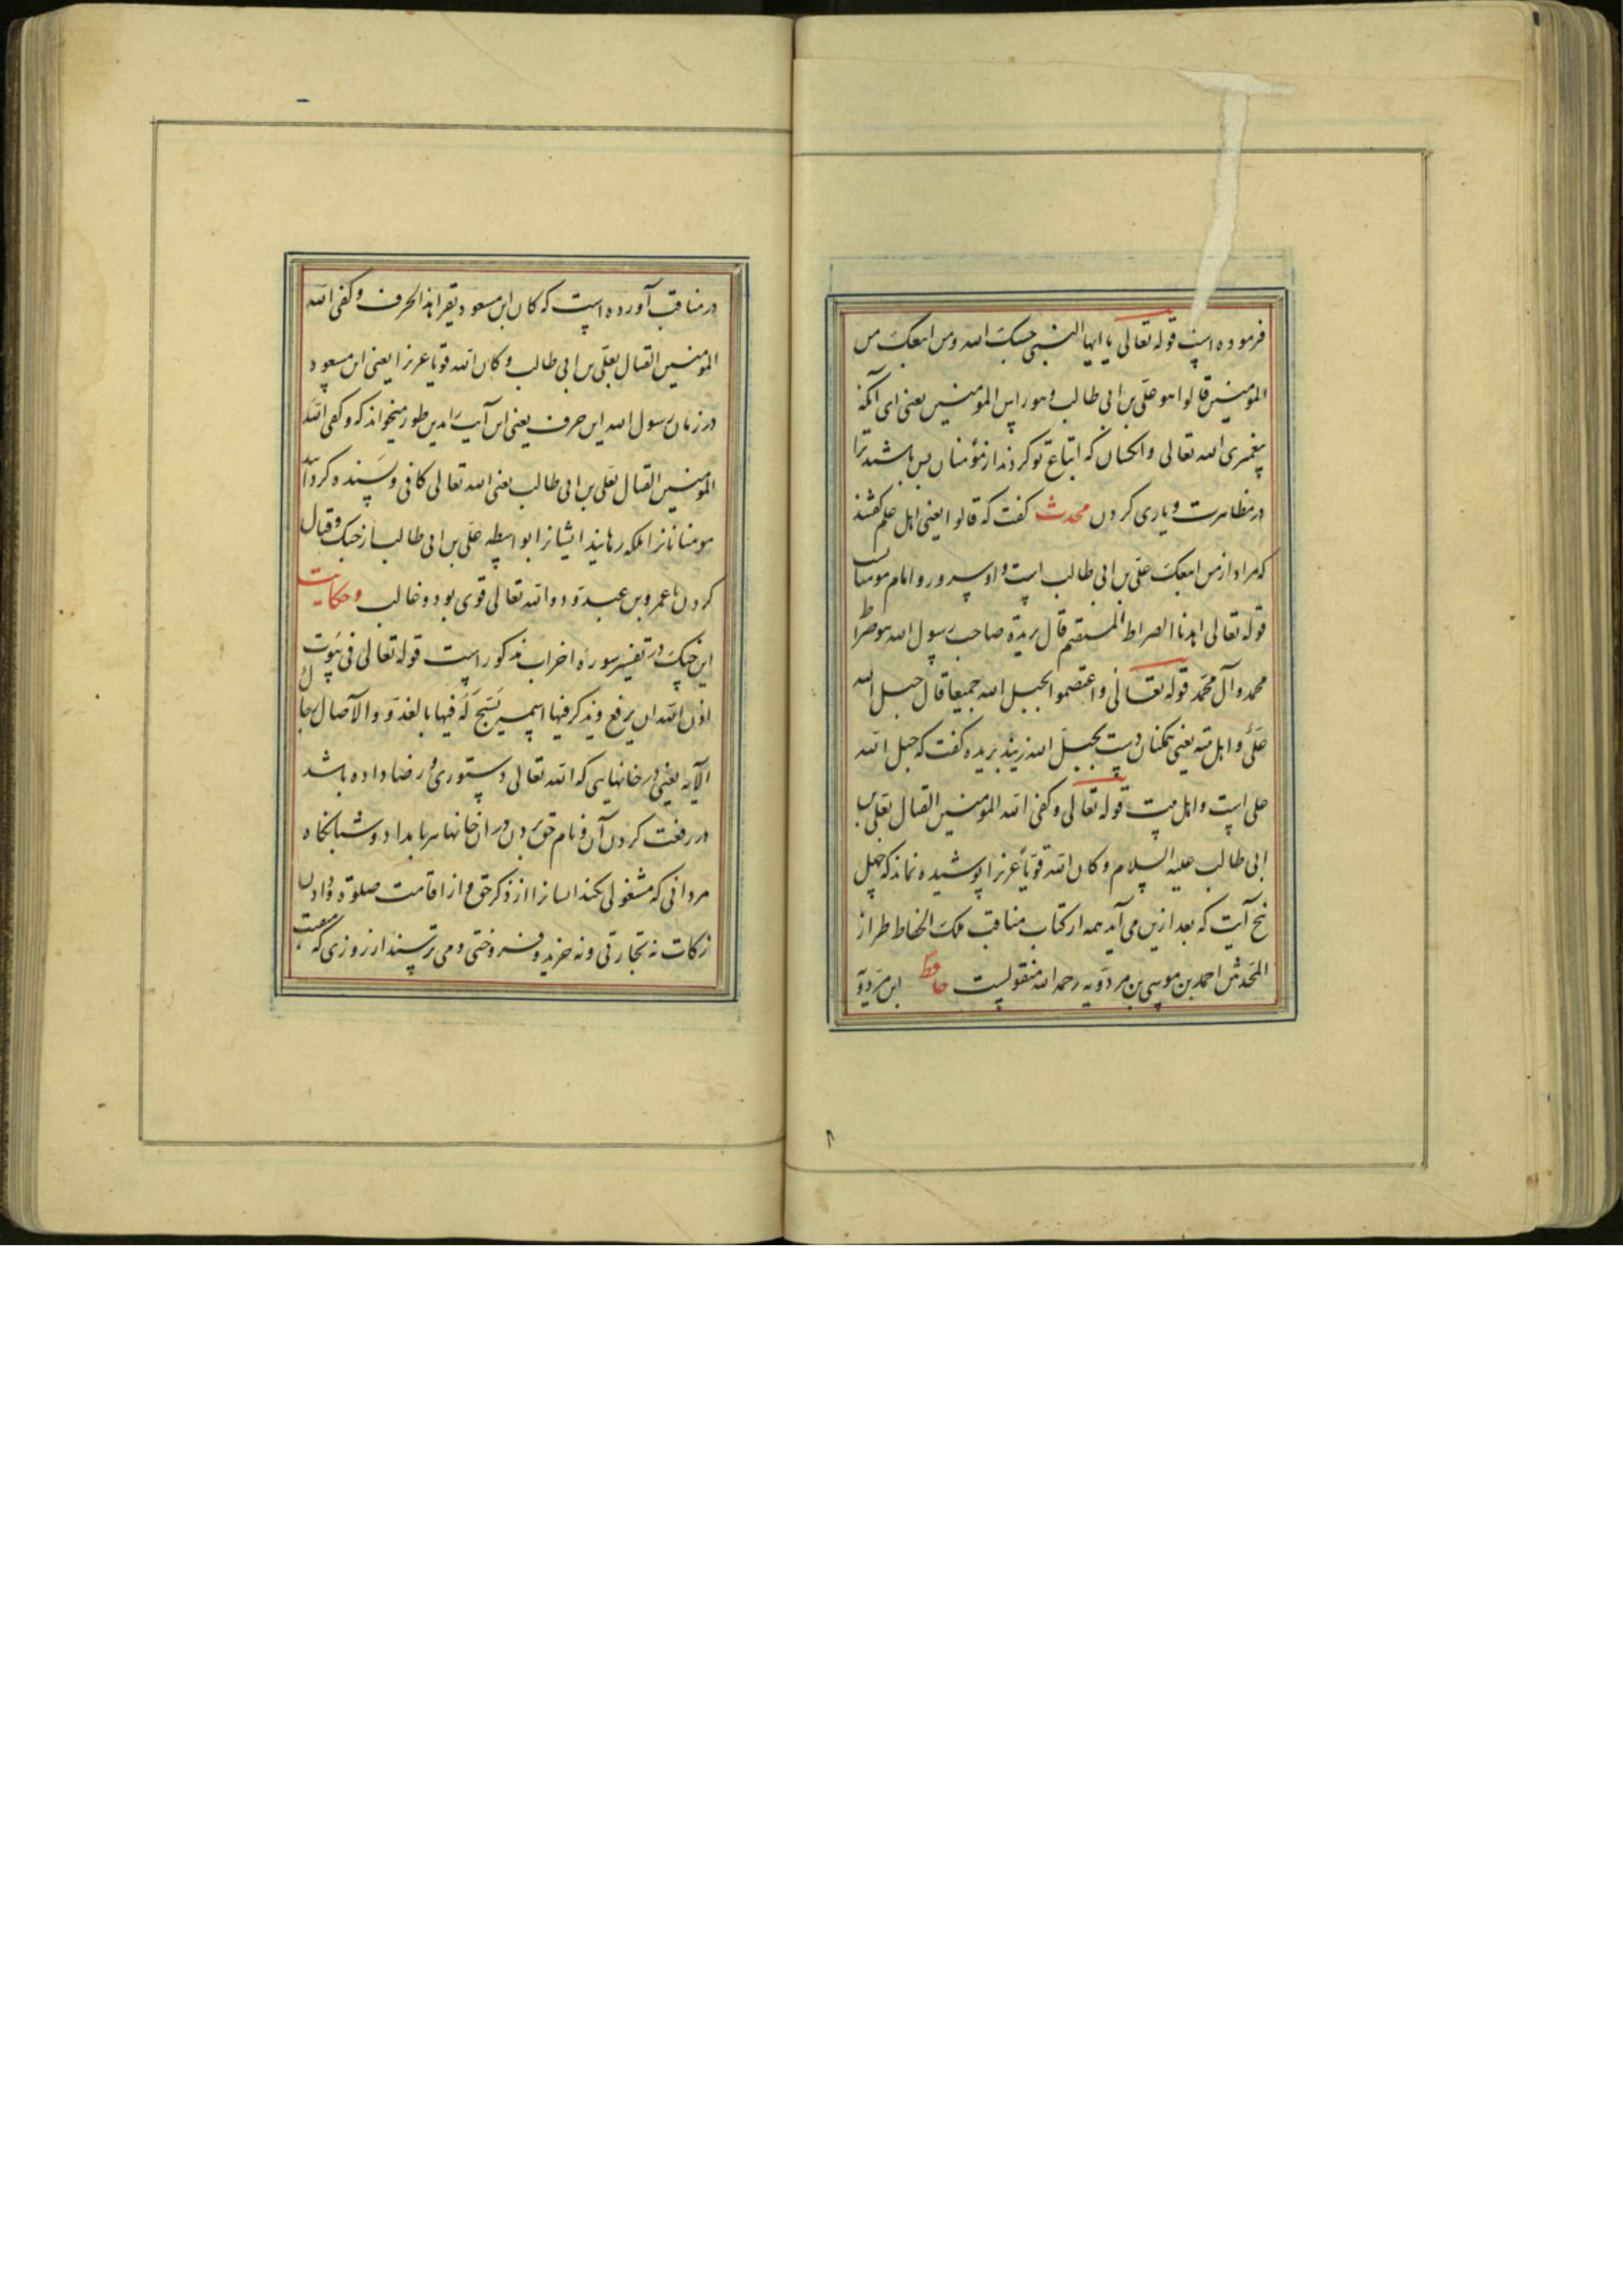 فرموده است قوله تعالی یا ایها النبی حسبک الله ومن اتبعک من
المومنین قالوا هو علی بن ابی طالب وهو راس المومنین یعنی ای آنکه
پیغمبری الله تعالی و انکسان که اتباع تو کردند از مؤمنان بس باشند ترا
در مظاهرت و یاری کردن محدث گفت که قالوا یعنی اهل علم گفتند
که مراد از من اتبعک علی بن ابی طالب است و او سرور و امام مومنان
قوله تعالی اهدنا الصراط المستقیم قال بریدة صاحب رسول الله هو صراط
محمد وآل محمد قوله تعالی واعتصموا بحبل الله جمیعا قال حبل الله
علی و اهل بیته یعنی همکنان دست بحبل الله زنید بریده گفت که حبل الله
علی است و اهل بیت قوله تعالی وکفی الله المومنین القتال بعلی بن
ابی طالب علیه السلام وکان الله قویا عزیزا پوشیده نماند که چهل
پنج آیت که بعد ازین می آید همه از کتاب مناقب ملک الحفاظ طراز
المحدثین احمد بن موسی بن مردویه رحمه الله منقولست حافظ ابن مردویه
در مناقب آورده است که کان ابن مسعود یقرا هذا الحرف وکفی الله
المومنین القتال بعلی بن ابی طالب وکان الله قویا عزیزا یعنی ابن مسعود
در زمان رسول الله این حرف یعنی این آیت را بدین طور میخواند که وکفی الله
المومنین القتال بعلی بن ابی طالب یعنی الله تعالی کافی و بسنده کردآنید
مومنانرا بلکه رهانید ایشانرا بواسطه علی بن ابی طالب از جنک و قتال
کردن با عمرو بن عبدود و الله تعالی قوی بود و غالب وحکایت
این جنک در تفسیر سوره احزاب مذکور است قوله تعالی فی بیوت
اذن الله ان یرفع ویذکر فیها اسمه یسبح له فیها بالغدو والآصال رجال
الآیه یعنی در خانهایی که الله تعالی دستوری و رضا داده باشد
در رفعت کردن آن و نام حق بردن در ان خانها هر بامداد و شبانکاه
مردانی که مشغولی نکند ایشانرا از ذکر حق و از اقامت صلوة و دادن
زکات نه تجارتی و نه خرید و فروختی و می ترسند از روزی که